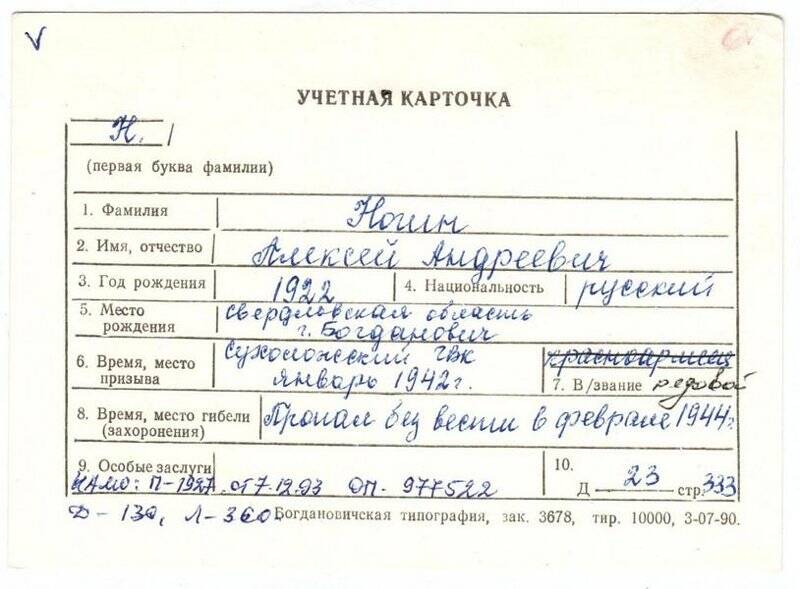 V
УЧЕТНАЯ КАРТОЧКА
Н.
(первая буква фамилии)
1. Фамилия Ногин
2. Имя, отчество Алексей Андреевич
3. Год рождения 1922 4. Национальность русский
5. Место рождения свердловская область
г. Богданович
6. Время, место призыва Сухоложский ГВК
январь 1942 г.
красноармеец
7. В/звание рядовой
8. Время, место гибели (захоронения) Пропал без вести в феврале 1944г.
9. Особые заслуги
10.
Д 23 стр. 333
ЦАМО: П-1927 от 7.12.93 ОП- 977522
Д- 130, Л-360.
Богдановичская типография, зак. 3678, тир. 10000, 3-07-90.